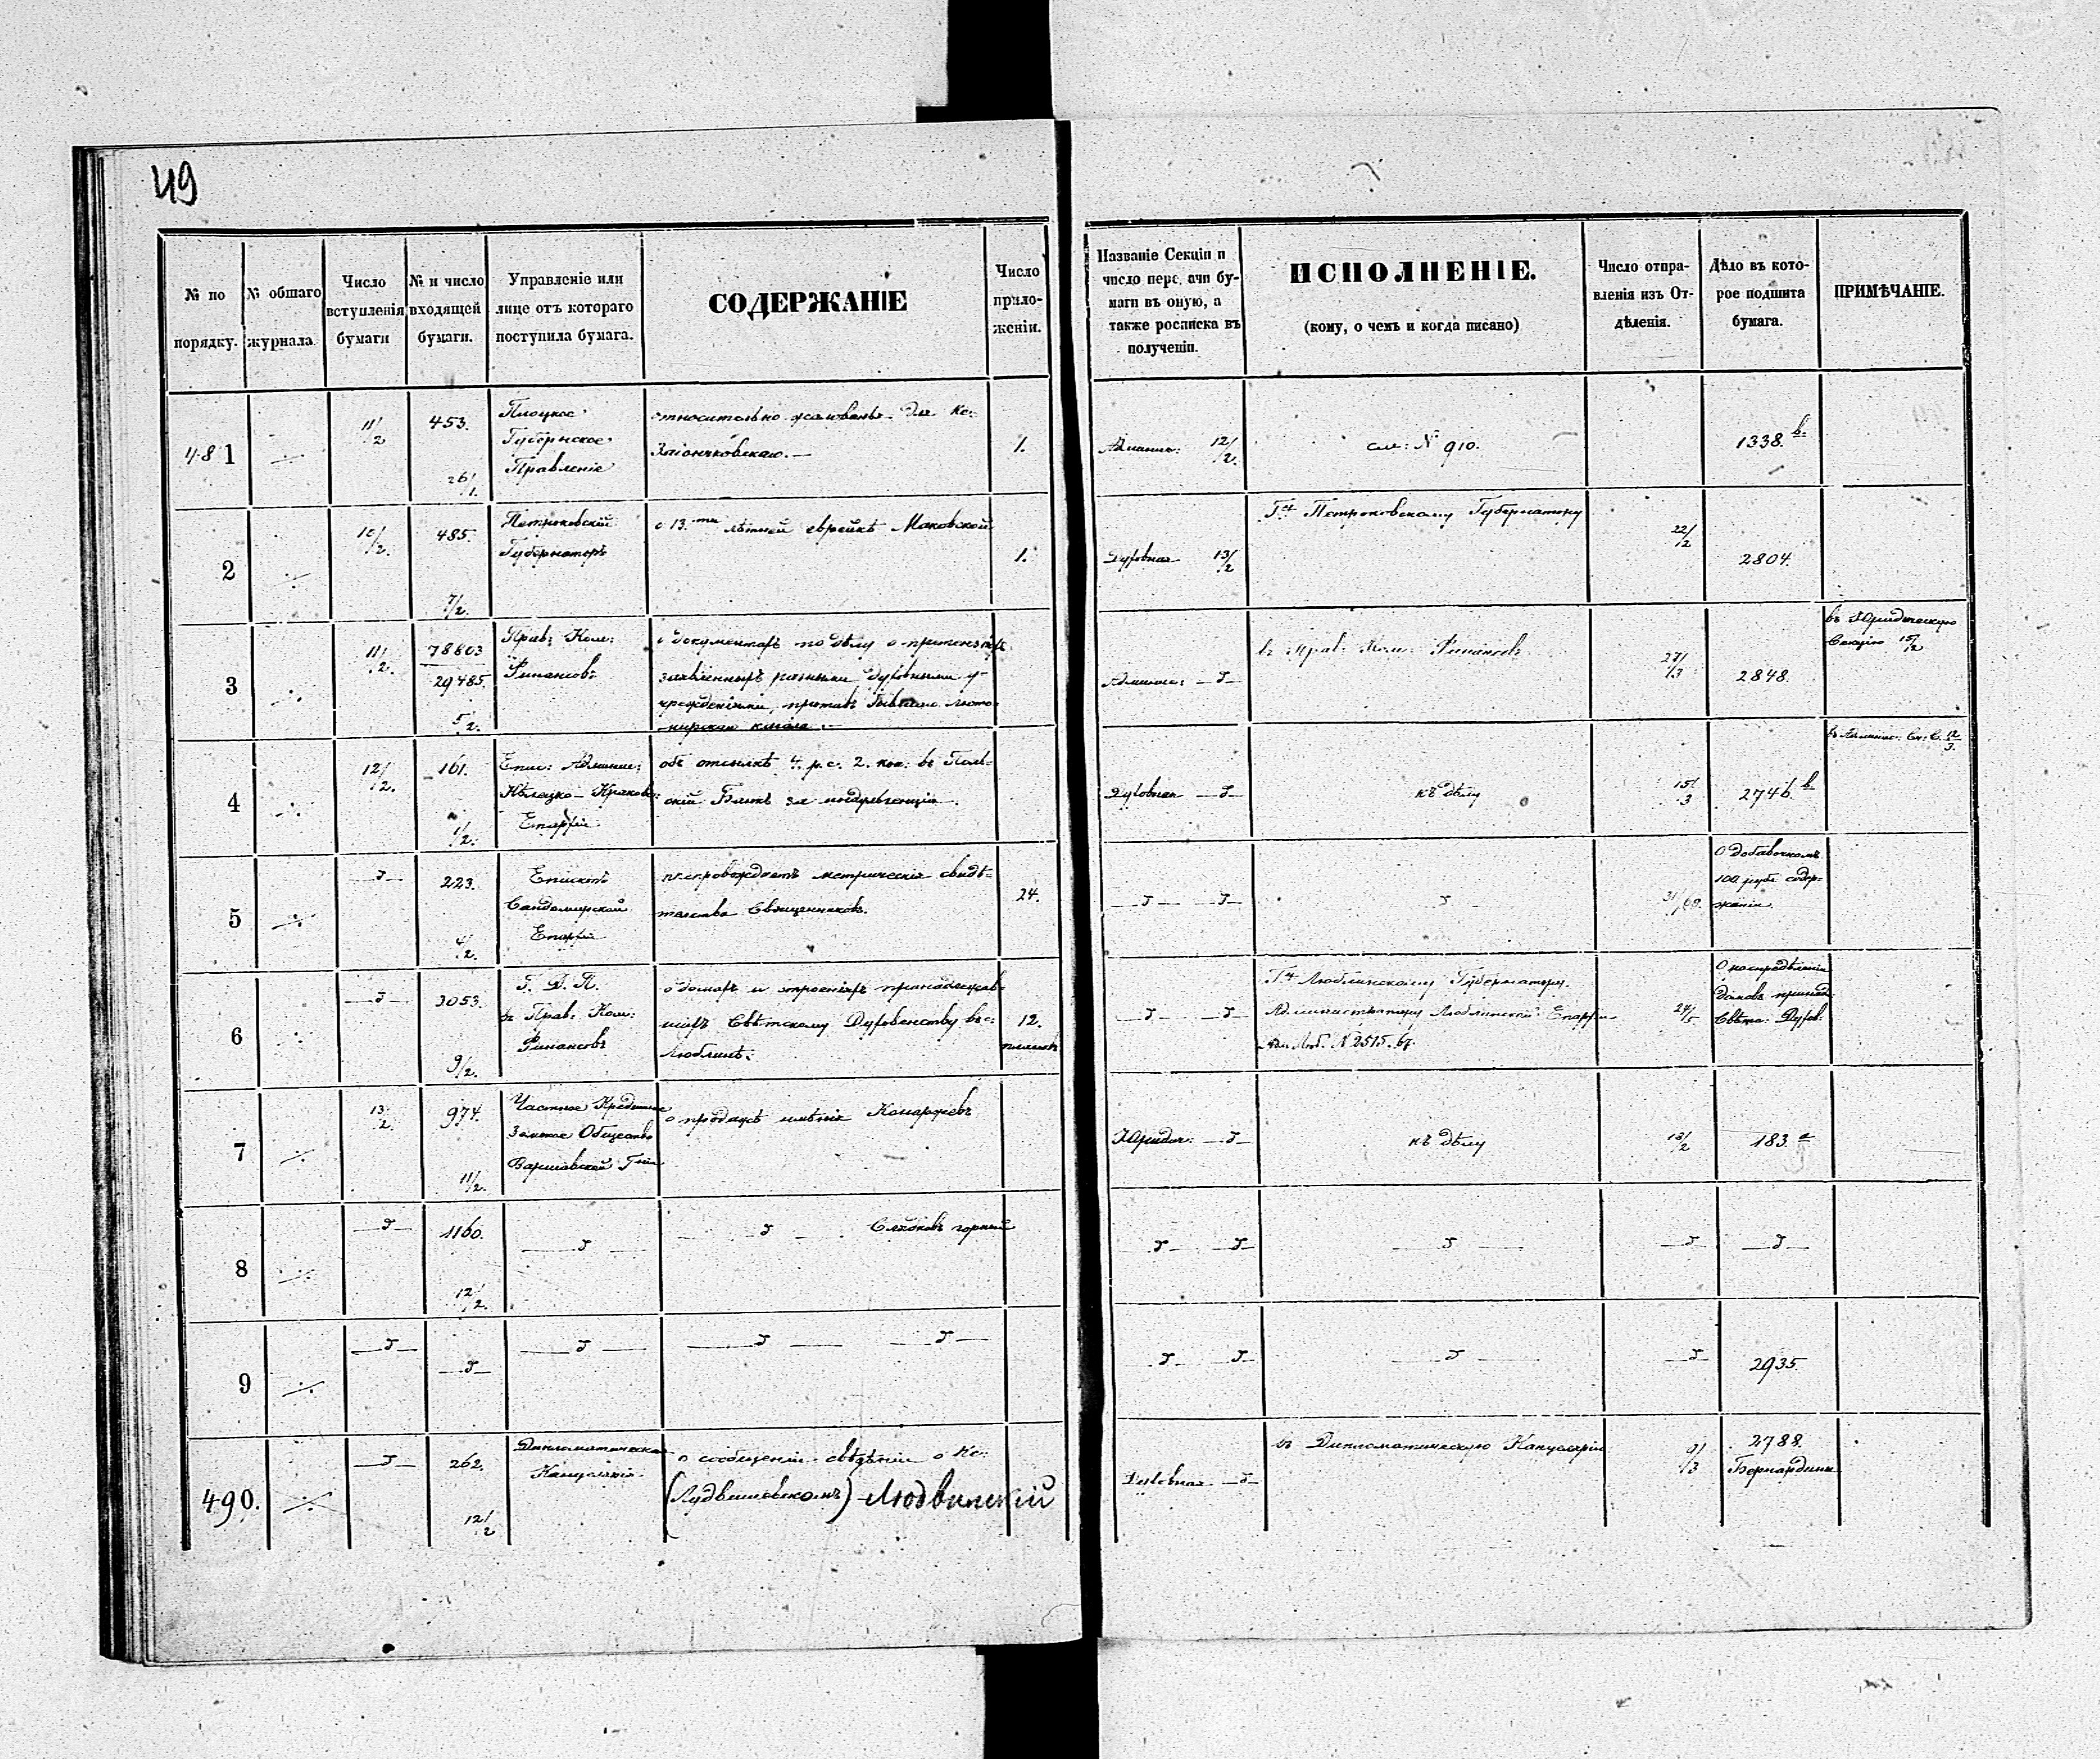 49
№ по порядку.
№ общаго журнала.
Число вступленія бумаги
№ и число входящей бумаги.
Управленіе или лице отъ котораго поступила бумага.
СОДЕРЖАНІЕ
Число приложеній.
Названіе Секціи и число передачи бумаги въ оную, а также росписка въ полученіи.
ИСПОЛНЕНІЕ.
(кому, о чемъ и когда писано)
Число отправленія изъ Отдѣленія.
Дѣло въ которое подшита бумага.
ПРИМѢЧАНІЕ.
481
11/2
453.
26/1.
Плоцкое
Губернское
Правленіе
относительно жалованья для Кс:
Заіончковскаго.—
1.
Админис: 12/2.
см: № 910.
1338. b.
2
10/2.
485.
7/2.
Петроковскій
Губернаторъ
о 13.ти лѣтней еврейкѣ Маковской
1.
Духовная 13/2
Гну Петроковскому Губернатору
22/12
2804.
3
11/2.
78803
29485
5/2.
Прав: Ком:
Финансовъ
о документахъ по дѣлу о претензіяхъ
заявленныхъ разными духовными у-
чрежденіями, противъ бывшаго
Админис:
въ Прав: Ком: Финансовъ
27/3
2848.
въ Юридическую
Секцію 15/2
4
12/2.
161.
1/2.
Епис: Админис:
Кѣлецко-Краковс:
Епархіи.
объ отсылкѣ 4. р. с. 2. коп: въ Поль-
скій Банкъ за индульгенціи.
Духовная
къ дѣлу
15/3
2746. b
въ Админис: Се: С. 12/3.
5
223.
4/2.
Епископъ
Сандомирской
Епархіи
препровождаетъ метрическія свидѣ-
тельства Священниковъ.
24.
31/
О добавочномъ
100 рубл содер-
жаніи.
6
3053.
9/2.
Г. Д. П.
въ Прав: Ком:
Финансовъ
о домахъ и строеніяхъ принадлежав-
шихъ Свѣтскому Духовенству въ г:
Люблинѣ.
12.
Гну Люблинскому Губернатору.
Администратору Люблинской Епархіи
№ 2515. 67.
27/5
О распредѣленіи
домовъ принад:
Свѣтс: Духов:
7
13/2.
974.
11/2.
Частное Кредитное
Земское Общество
Варшавской Гніи
о продажѣ имѣнія Конаржевъ
Юридич:
къ дѣлу
13/2
183. a
8
1160.
12/2.
горный
9
2935.
490.
262.
12/2
Дипломатическая
Канцелярія.
о сообщеніи свѣдѣній о Кс:
(Лудвишевскомъ) Людвинскій
Духовная
въ Дипломатическую Канцелярію
9/3
2788.
Бернардины